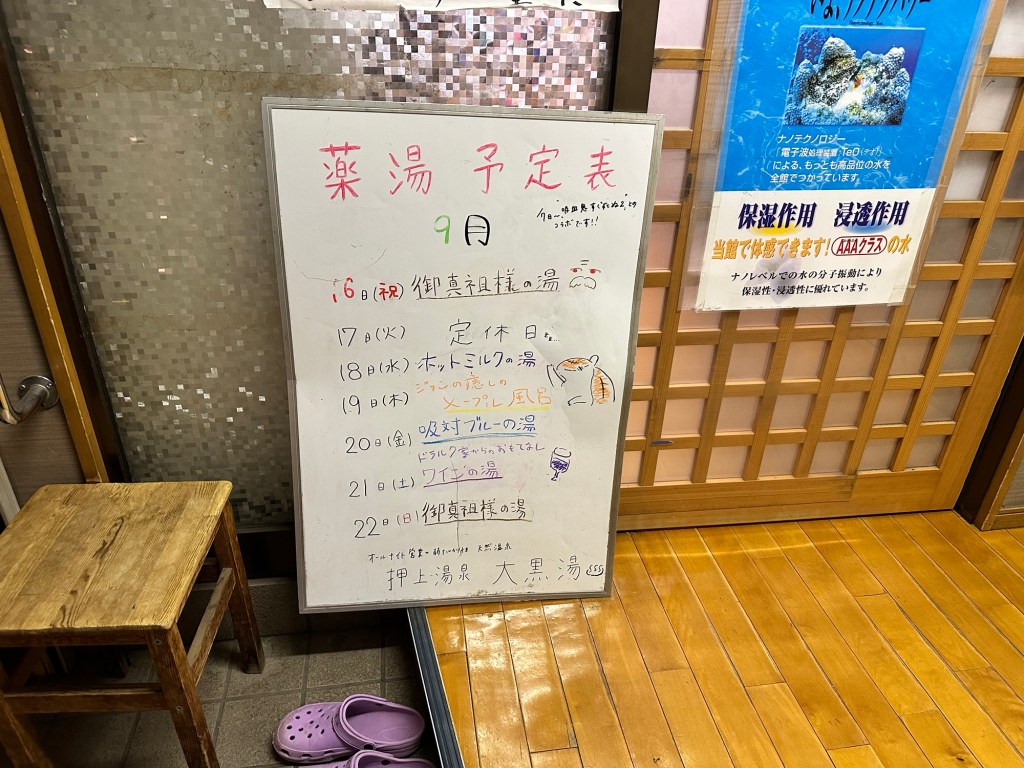 薬湯予定表
9月
今日〜"吸血鬼すぐ死ぬ2"との
コラボです!!
16日(祝) 御真祖様の湯
17日(火) 定休日
18日(水) ホットミルクの湯
19日(木) ジョンの癒しの
メープル風呂
20日(金) 吸対ブルーの湯
ドラルク家からのおもてなし
21日(土) ワインの湯
22日(日) 御真祖様の湯
オールナイト営業 天然温泉
押上温泉 大黒湯
ナノテクノロジー
「電子波処理装置 TeO(テオ)」
による、もっとも高品位の水を
全館でつかっています。
保湿作用 浸透作用
当館で体感できます! AAAクラスの水
ナノレベルでの水の分子振動により
保湿性・浸透性に優れています。